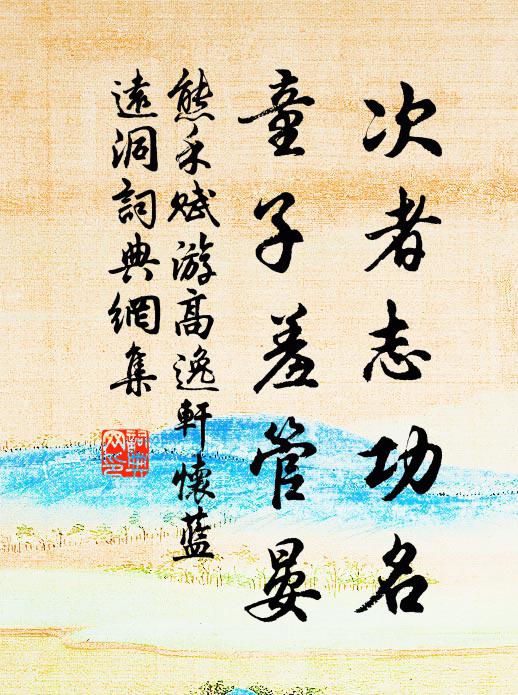 次者志功名
童子羞管晏
熊禾赋游高逸軒懷藍
遠洞詞典網集